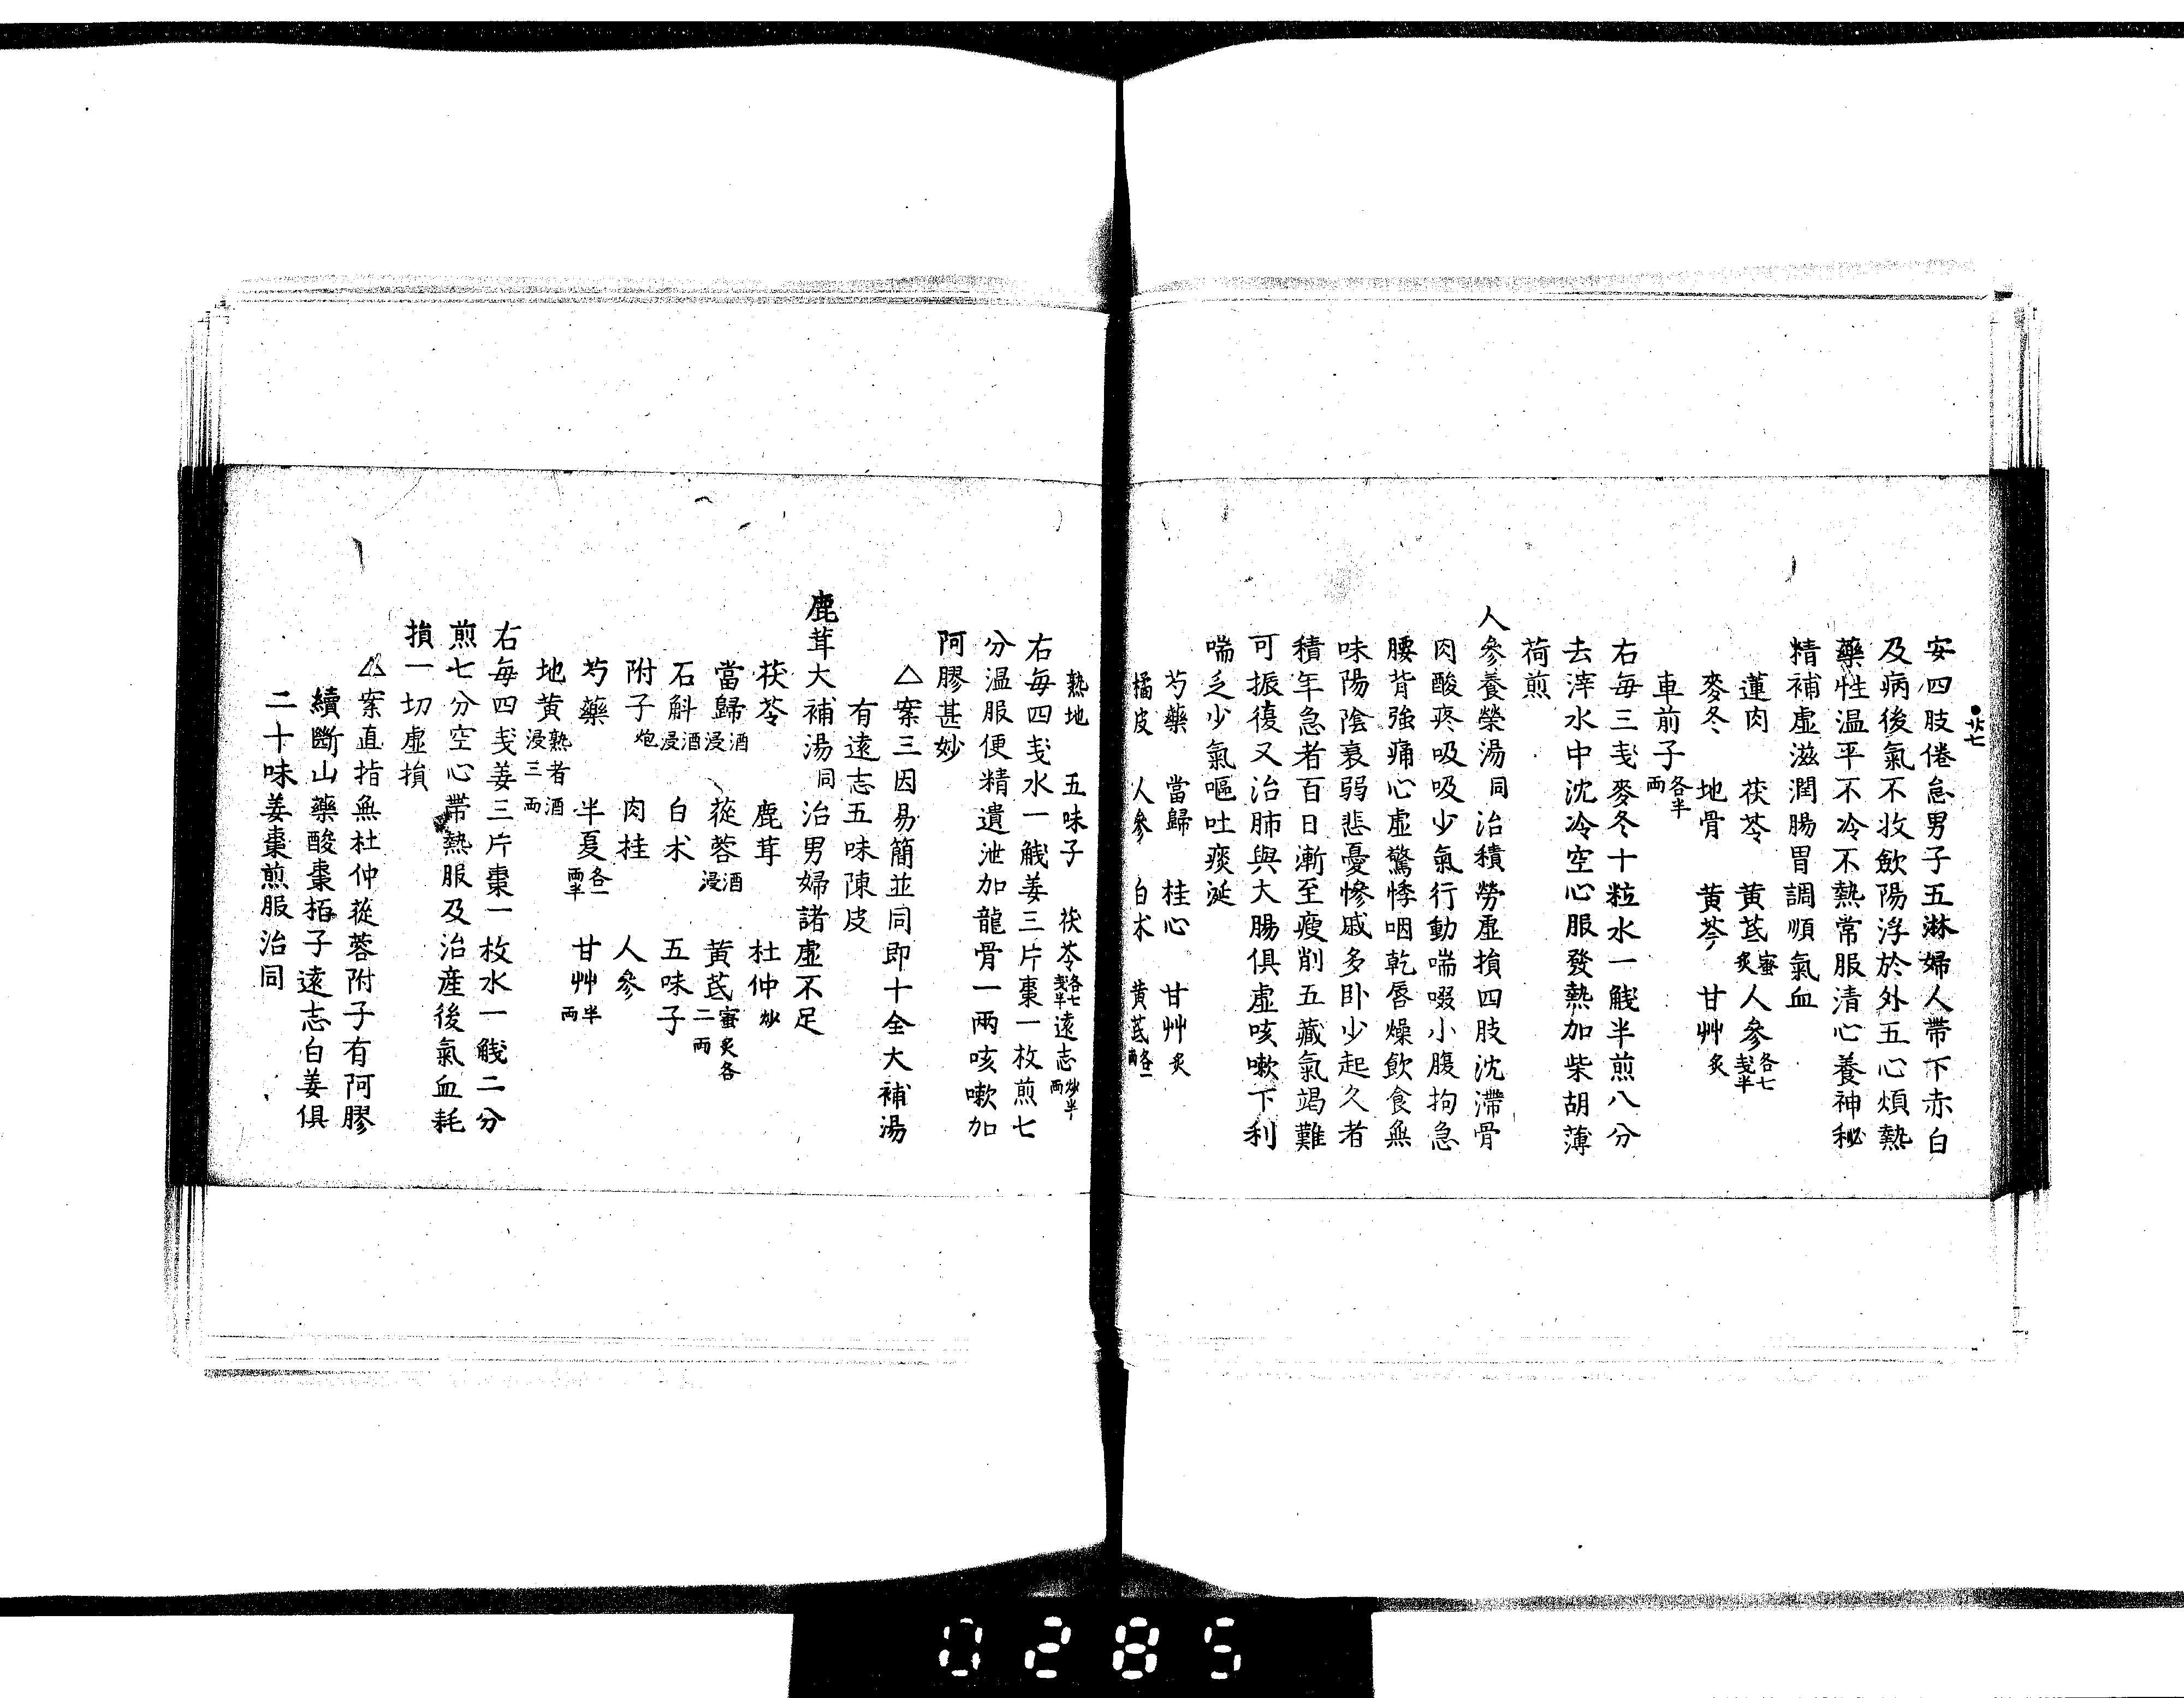 廿七
安四肢倦怠男子五淋婦人帶下赤白
及病後氣不收斂陽浮於外五心煩熱
藥性温平不冷不熱常服清心養神秘
精補虛滋潤腸胃調順氣血
蓮肉 茯苓 黄芪蜜炙 人參各七戔半
麥冬 地骨 黄芩 甘艸炙
車前子各半両
右毎三戔麥冬十粒水一盞半煎八分
去滓水中沈冷空心服發熱加柴胡薄
荷煎
人參養榮湯同 治積勞虛損四肢沈滯骨
肉酸疼吸吸少氣行動喘啜小腹拘急
腰背強痛心虛驚悸咽乾唇燥飲食無
味陽陰衰弱悲憂慘戚多卧少起久者
積年急者百日漸至瘦削五藏氣竭難
可振復又治肺與大腸俱虛咳嗽下利
喘乏少氣嘔吐痰涎
芍藥 當歸 桂心 甘艸炙
橘皮 人參 白朮 黄芪各一両
熟地 五味子 茯苓各七戔半 遠志炒半両
右毎四戔水一盞姜三片棗一枚煎七
分温服便精遺泄加龍骨一兩咳嗽加
阿膠甚妙
△案三因易簡並同即十全大補湯
有遠志五味陳皮
鹿茸大補湯同 治男婦諸虛不足
茯苓 鹿茸 杜仲炒
當歸酒浸 蓯蓉酒浸 黄芪蜜炙各二両
石斛酒浸 白朮 五味子
附子炮 肉桂 人參
芍藥 半夏各一両半 甘艸半両
地黄熟者酒浸三両
右毎四戔姜三片棗一枚水一盞二分
煎七分空心帶熱服及治産後氣血耗
損一切虛損
△案直指無杜仲蓯蓉附子有阿膠
續斷山藥酸棗栢子遠志白姜俱
二十味姜棗煎服治同
0285